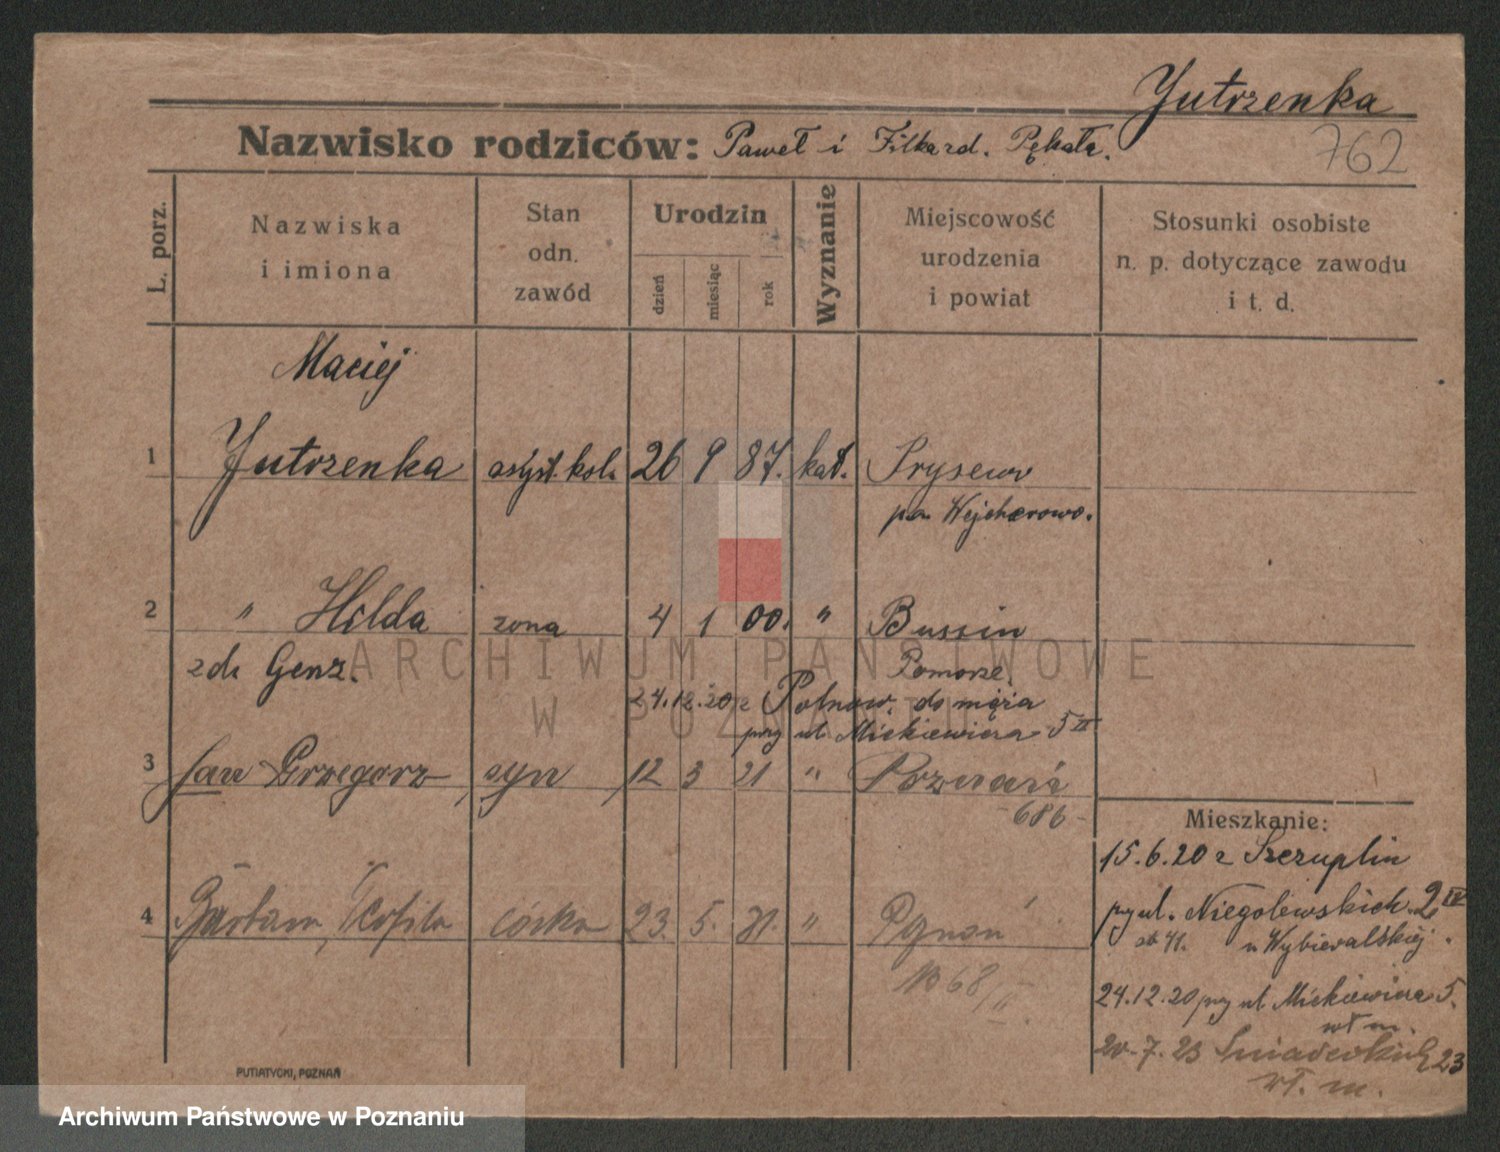 Jutrzenka
762
Nazwisko rodziców: Paweł i
L. porz.
Nazwiska i imiona
Stan odn. zawód
Urodzin
dzień
miesiąc
rok
Wyznanie
Miejscowość urodzenia i powiat
Stosunki osobiste n. p. dotyczące zawodu i t. d.
Maciej
1 Jutrzenka asyst. kol. 26 9 87. kat.
Wejcherowo.
2 " Hilda żona 4 1 00. " Bussin
zd. Genz. Pomorze.
24.12.20 z do męża
przy ul. Mickiewicza 5 II
3 Jan Grzegorz syn 12 3 21 " Poznań
-686-
Mieszkanie:
15.6.20 z
przy ul. Niegolewskich 2 IV
u
4 Teofila córka 23. 5. "
24.12.20 przy ul. Mickiewicza 5.
wł m.
20.7.23 Śniadeckich 23
wł. m.
PUTIATYCKI, POZNAŃ
ARCHIWUM PAŃSTWOWE
W POZNANIU
Archiwum Państwowe w Poznaniu